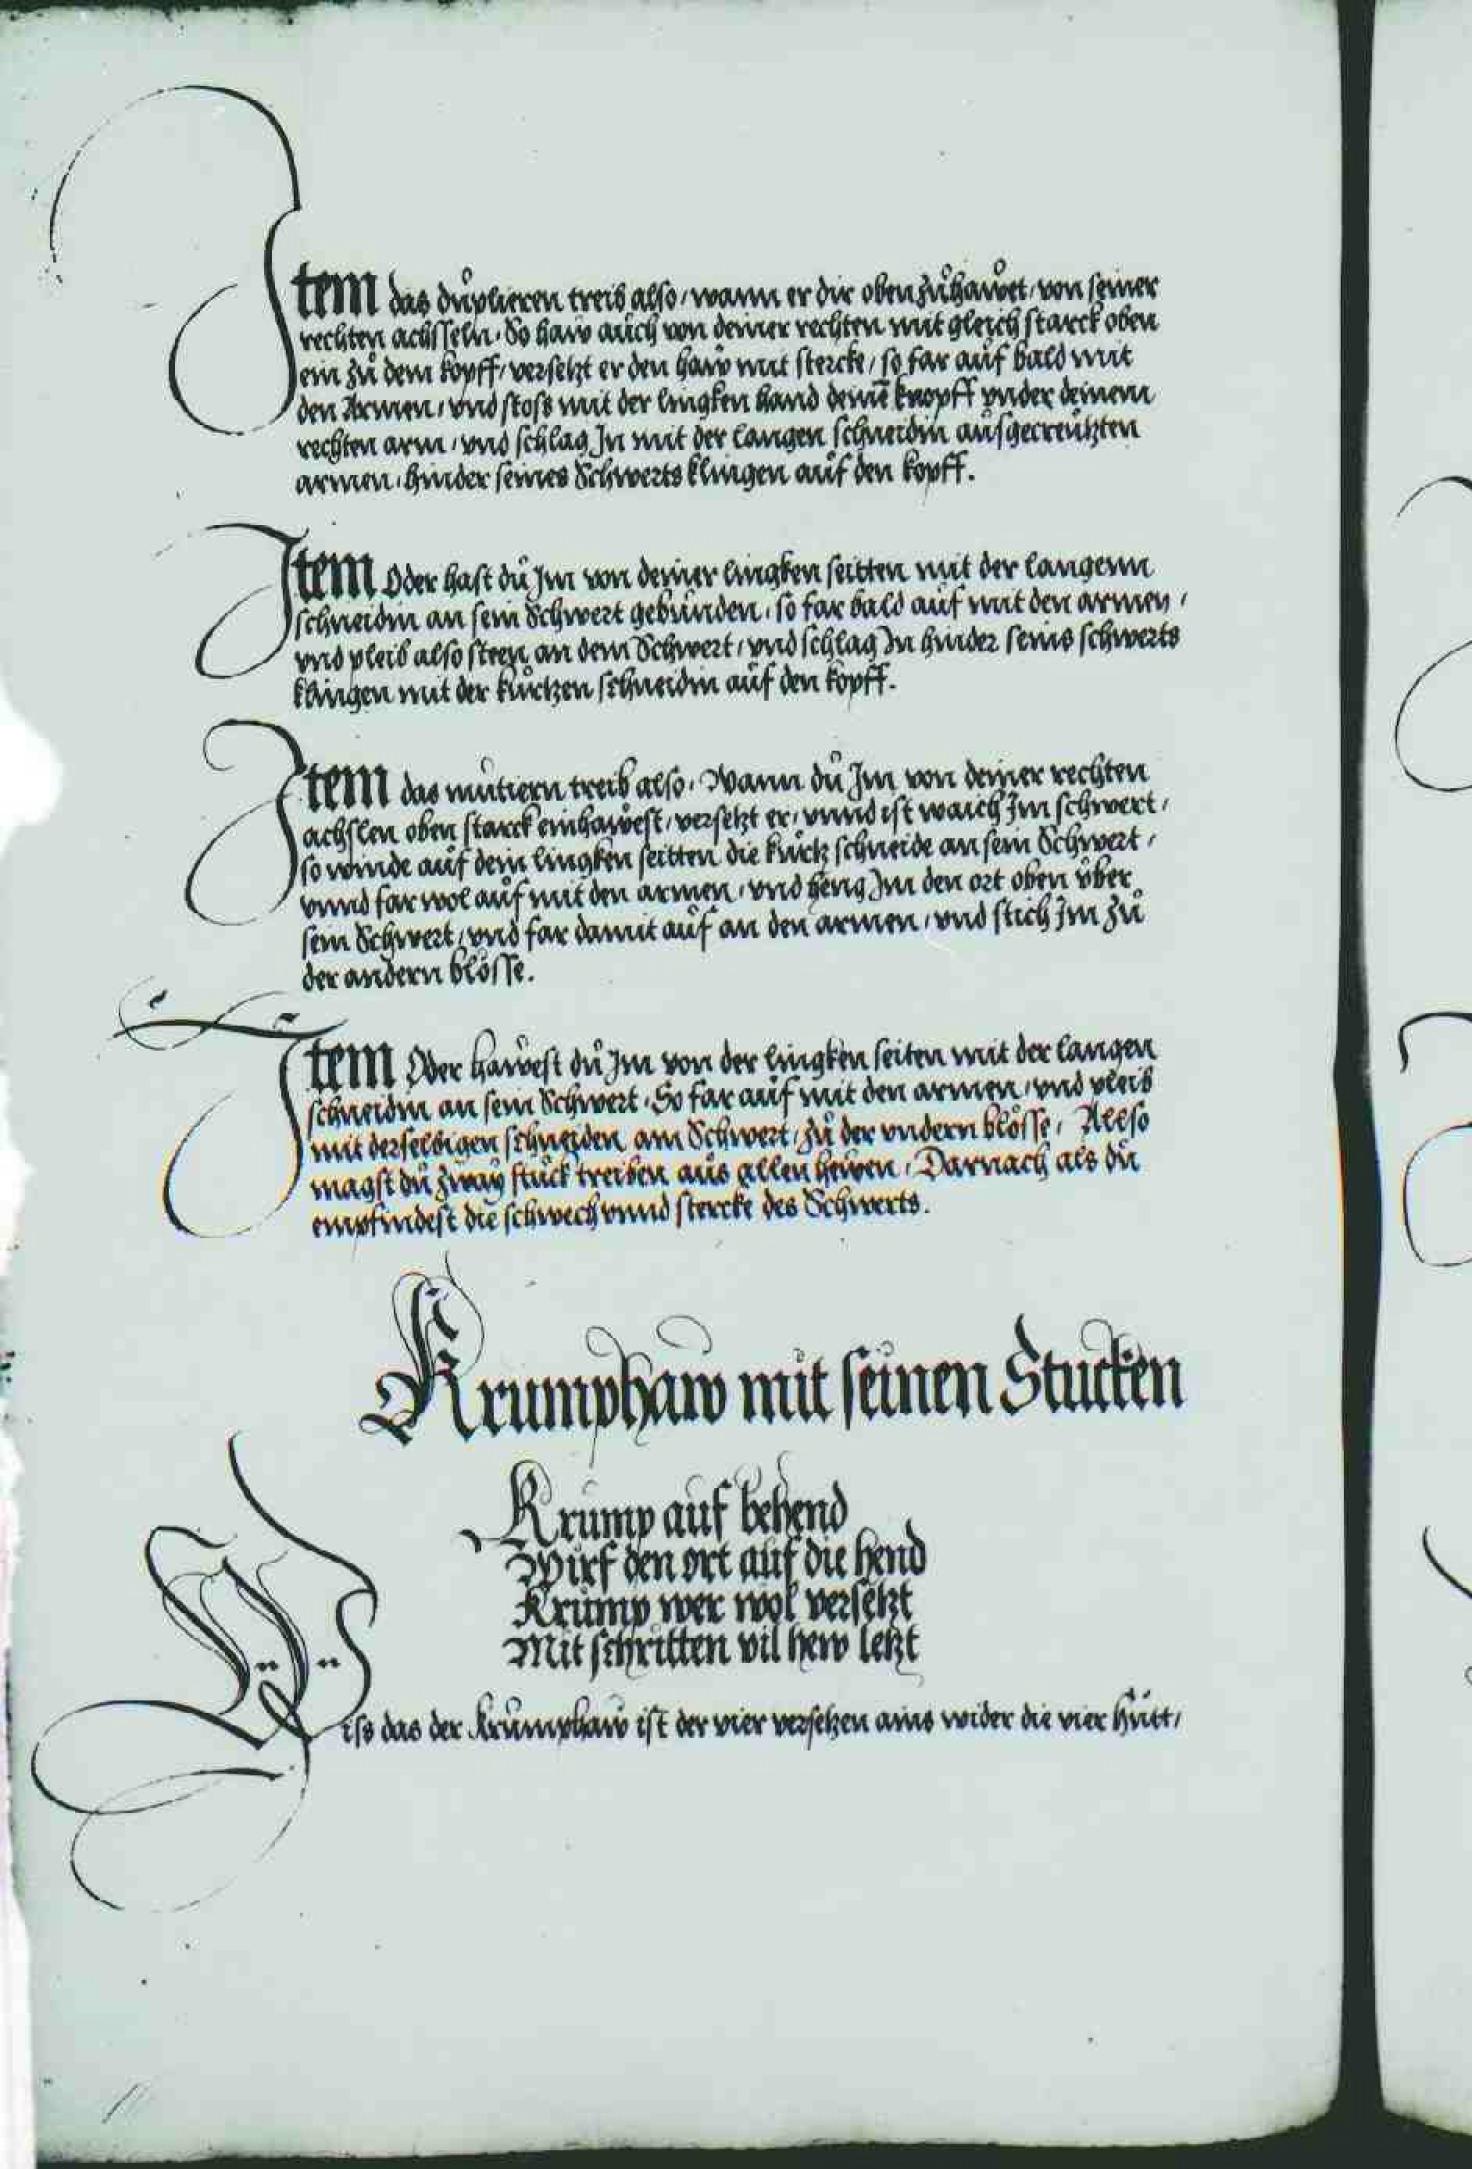 Item das duplieren treib also / wann er dir oben zůhawet / von seiner
rechten achsseln. So haw aůch von deiner rechten mit gleich starck oben
ein zů dem kopff / versetzt er den haw mit stercke / so far aůf bald mit
den Armen / vnd stoss mit der lingken hand deinē knopff vnder deinem
rechten arm / vnd schlag In mit der langen schneidin aůsgecreůtzten
armen. hinder seines Schwerts klingen aůf den kopff.
Item Oder hast dů Im von deiner lingken seitten mit der langenn
schneidin an sein Schwert gebůnden. so far bald aůf mit den armen /
vnd pleib also steen an dem Schwert / vnd schlag In hinder seins schwerts
klingen mit der kůrtzen schneidin aůf den kopff.
Item das mutiern treib also. Wann dů Im von deiner rechten
achslen oben starck einhawest / versetzt er / vnnd ist waich Im schwert /
so winde aůf dein lingken seitten die kůrtz schneide an sein Schwert /
vnnd far wol aůf mit den armen / vnd heng Im den ort oben v̊ber
sein Schwert / vnd far damit aůf an den armen / vnd stich Im zů
der andern blösse.
Item Oder hawest dů Im von der lingken seiten mit der langen
schneidin an sein Schwert. So far aůf mit den armen / vnd pleib
mit derselbigen schneiden am Schwert / zů der vndern blösse / Allso
magst dů zway stůck treiben aůs allen hewen / Darnach als dů
empfindest die schwech vnnd stercke des Schwerts.
Krumphaw mit seinen Stucken
Krump auf behend
Wirf den ort auf die hend
Krump wer wol versetzt
Mit schritten vil hew letzt
Wiss das der Krůmphaw ist der vier versetzen ains wider die vier hůtt /